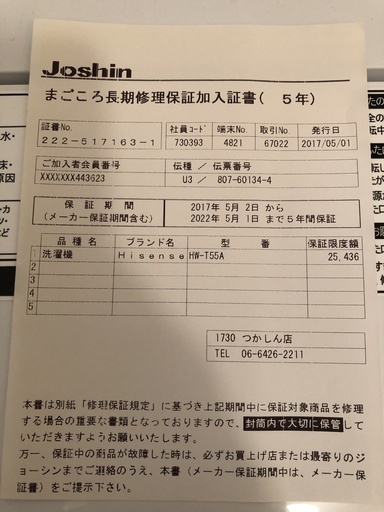 Joshin
まごころ長期修理保証加入証書( 5年)
証書No. 社員ｺｰﾄﾞ 端末No. 取引No. 発行日
222-517163-1 730393 4821 67022 2017/05/01
ご加入者会員番号 伝種 / 伝票番号
XXXXXXX443623 U3 / 807-60134-4
保証期間 2017年 5月 2日 から
(メーカー保証期間含む) 2022年 5月 1日 まで5年間保証
品種名 ブランド名 型番 保証限度額
1 洗濯機 Hisense HW-T55A 25,436
2
3
4
5
1730 つかしん店
TEL 06-6426-2211
本書は別紙「修理保証規定」に基づき上記期間中に保証対象商品を修理
する場合の重要な書類となっておりますので、封筒内で大切に保管して
いただきますようお願いいたします。
万一、保証中の商品が故障した時は、必ずお買上げ店または最寄りのジ
ョーシンまでご連絡のうえ、本書(メーカー保証期間中は、メーカー保
証書)をご提示下さい。